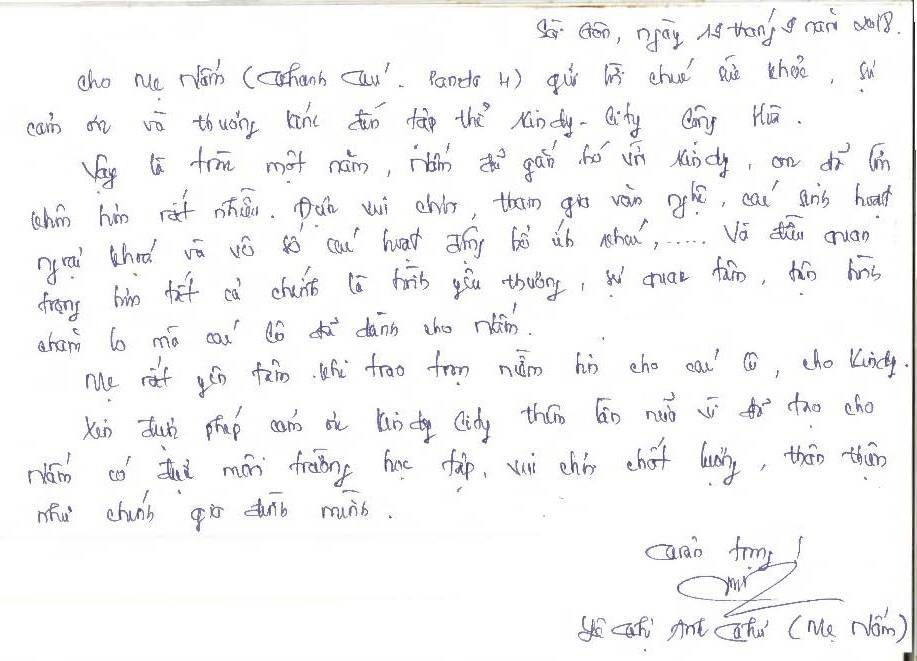 Sài Gòn, ngày 18 tháng 9 năm 2018.
Cho Mẹ Nấm (Thanh Trúc. Panda 4) gửi lời chúc sức khỏe, sự
cảm ơn và thương kính đến tập thể Kindy-City Cộng Hòa.
Vậy là tròn một năm, Nấm đã gắn bó với Kindy, con đã lớn
khôn hơn rất nhiều. Được vui chơi, tham gia văn nghệ, các sinh hoạt
ngoại khoá và vô số các hoạt động bổ ích khác,..... Và điều quan
trọng hơn tất cả chính là tình yêu thương, sự quan tâm, tận tình
chăm lo mà các Cô đã dành cho Nấm.
Mẹ rất yên tâm khi trao trọn niềm tin cho các Cô, cho Kindy.
Xin được phép cám ơn Kindy City thêm lần nữa vì đã tạo cho
Nấm có được môi trường học tập, vui chơi chất lượng, thân thiện
như chính gia đình mình.
Trân trọng!
(Mẹ Nấm)